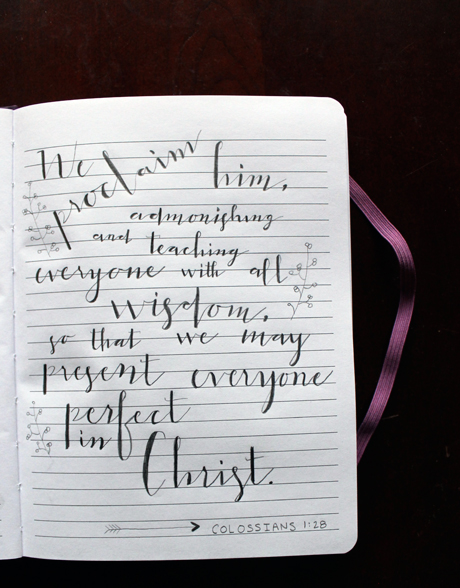 We proclaim him,
admonishing
and teaching
everyone with all
wisdom,
so that we may
present everyone
perfect
in Christ.
COLOSSIANS 1:28